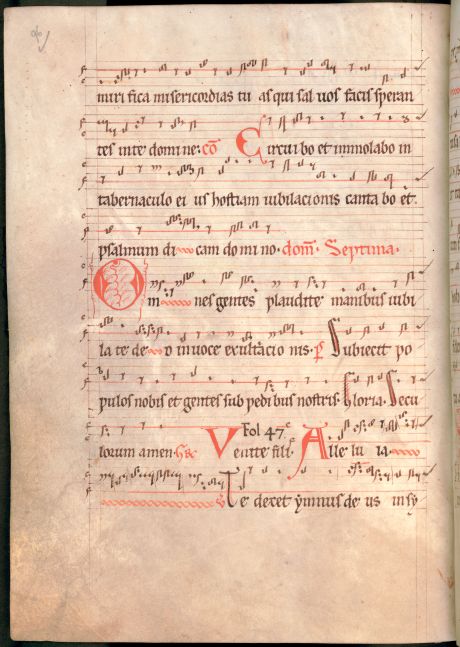 miri fica misericordias tu as qui sal uos facis speran
tes inte domi ne: cō Circui bo et immolabo in
tabernaculo ei us hostiam iubilacionis canta bo et
psalmum di cam do mi no. dom̄. Septima.
Om nes gentes plaudite manibus iubi
la te de o in uoce exultacio nis. p̄ Subiecit po
pulos nobis et gentes sub pedi bus nostris. Gloria. Secu
lorum amen. Venite fili. Alle lu ia.
Fol 47
Te decet ymnus de us in sy